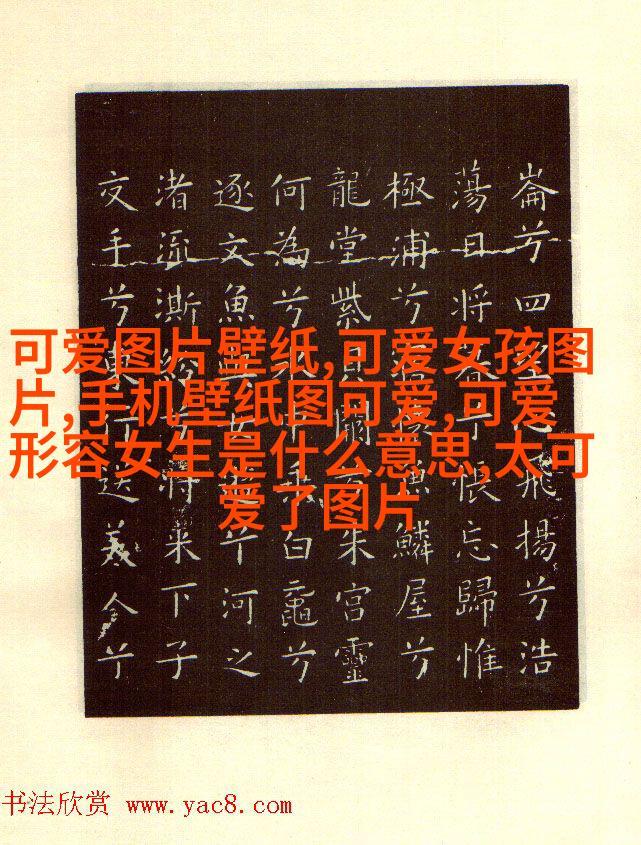 崙兮四望心飛揚兮浩
蕩日將暮兮悵忘歸惟
極浦兮寤懷魚鱗屋兮
龍堂紫貝闕兮朱宮靈
何為兮水中乘白黿兮
逐文魚與女遊兮河之
渚流澌紛兮將来下子
交手兮東行送美人兮
可爱图片壁纸,可爱女孩图
片,手机壁纸图可爱,可爱
形容女生是什么意思,太可
爱了图片
书法欣赏 www.yac8.com